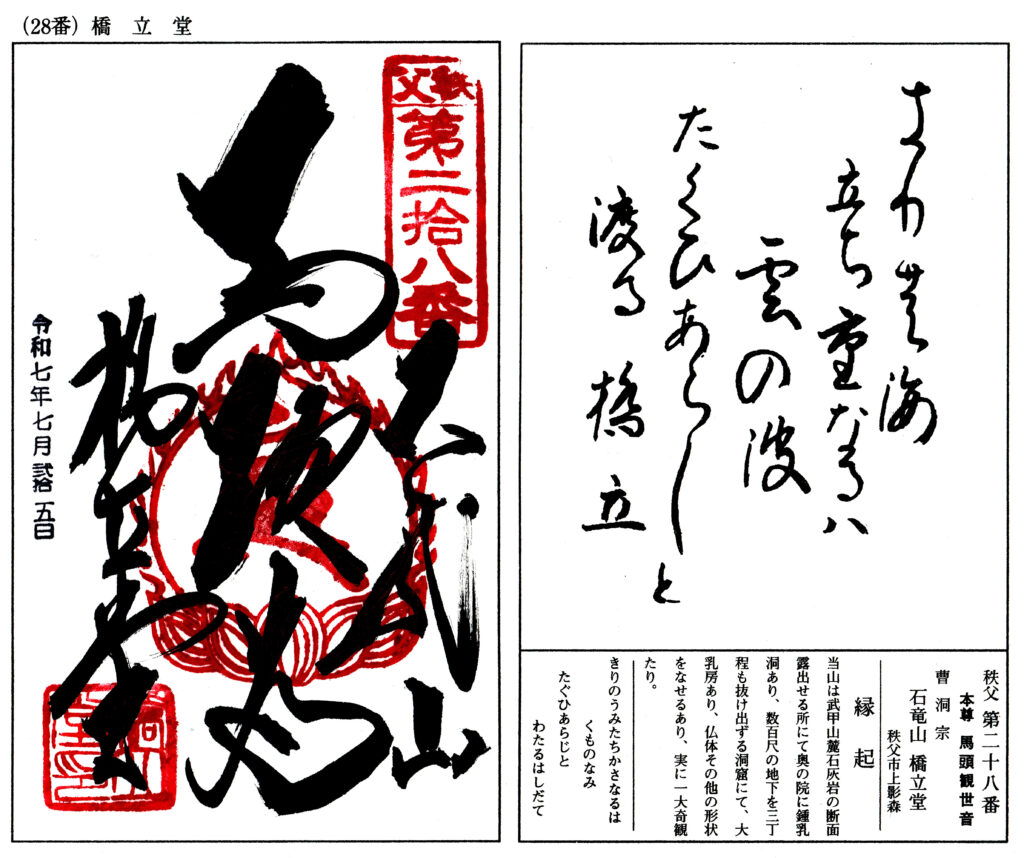 （28番）橋立堂
秩父
第二拾八番
橋立堂
令和七年七月弐拾五日
きりの海
立ち重なるハ
雲の波
たくひあらしと
渡る橋立
秩父 第二十八番
本尊 馬頭観世音
曹洞宗
石竜山 橋立堂
秩父市上影森
縁起
当山は武甲山麓石灰岩の断面
露出せる所にて奥の院に鍾乳
洞あり、数百尺の地下を三丁
程も抜け出ずる洞窟にて、大
乳房あり、仏体その他の形状
をなせるあり、実に一大奇観
たり。
きりのうみたちかさなるは
くものなみ
たぐひあらじと
わたるはしだて